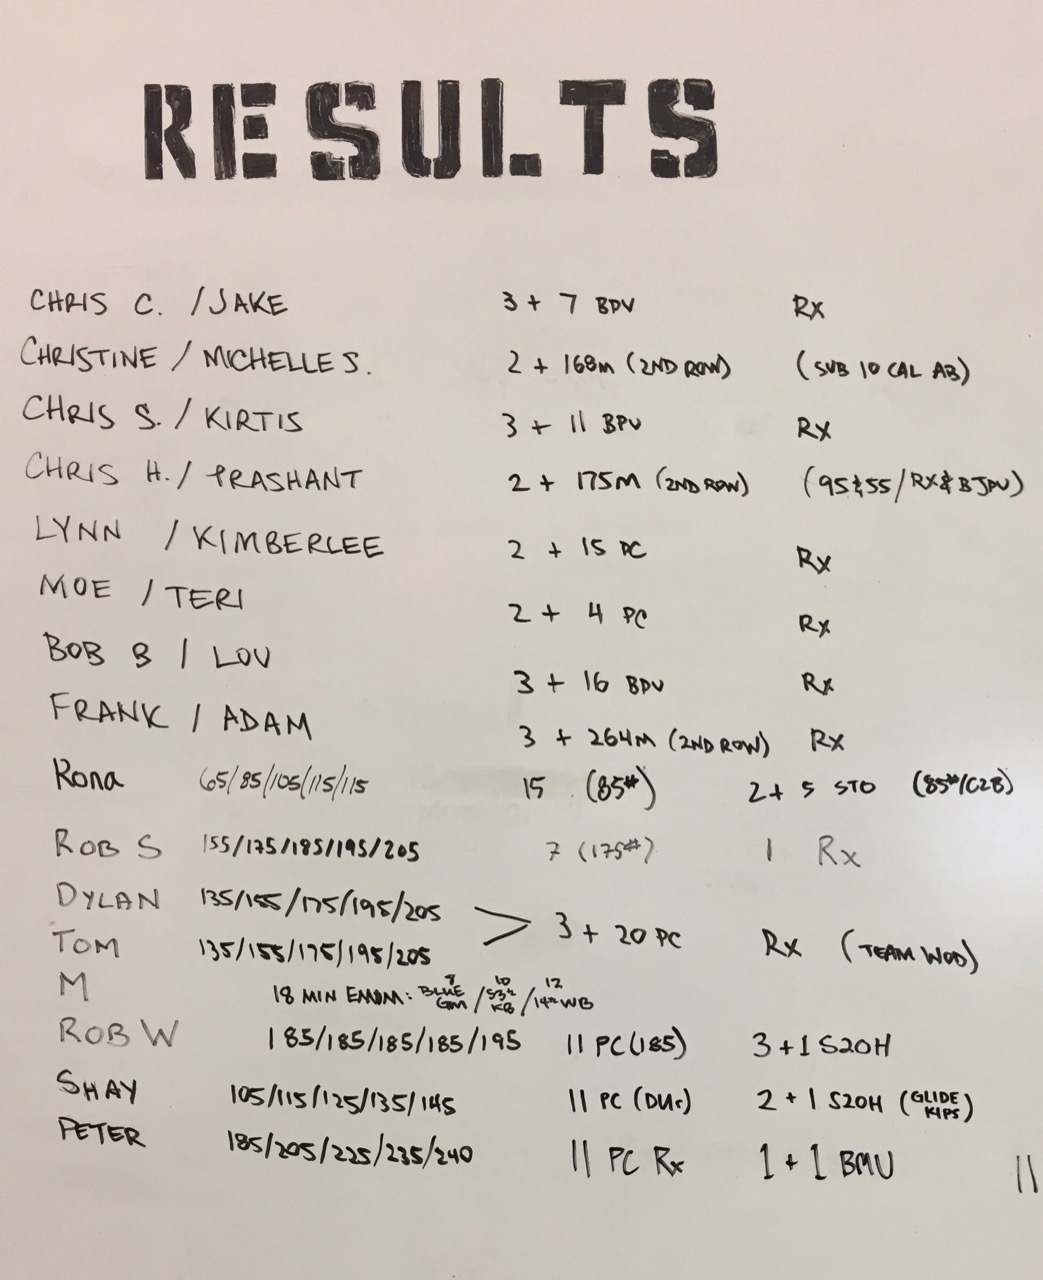 RESULTS
CHRIS C. / JAKE 3 + 7 BPU Rx
CHRISTINE / MICHELLE S. 2 + 168m (2ND ROW) (SUB 10 CAL AB)
CHRIS S. / KIRTIS 3 + 11 BPU Rx
CHRIS H. / PRASHANT 2 + 175M (2ND ROW) (95&55/RX& BJPU)
LYNN / KIMBERLEE 2 + 15 PC Rx
MOE / TERI 2 + 4 PC Rx
BOB B / LOU 3 + 16 BPU Rx
FRANK / ADAM 3 + 264M (2ND ROW) Rx
Rona 65/85/105/115/115 15 (85#) 2 + 5 STO (85#/C2B)
ROB S 155/175/185/195/205 7 (175#) 1 Rx
DYLAN 135/155/175/195/205 > 3 + 20 PC Rx (TEAM WOD)
TOM 135/155/175/195/205
M 18 MIN EMOM: 8 BLUE GM / 10 53# KB / 12 14# WB
ROB W 185/185/185/185/195 11 PC (185) 3 + 1 S2OH
SHAY 105/115/125/135/145 11 PC (DUs) 2 + 1 S2OH (GLIDE KIPS)
PETER 185/205/225/235/240 11 PC Rx 1 + 1 BMU 11